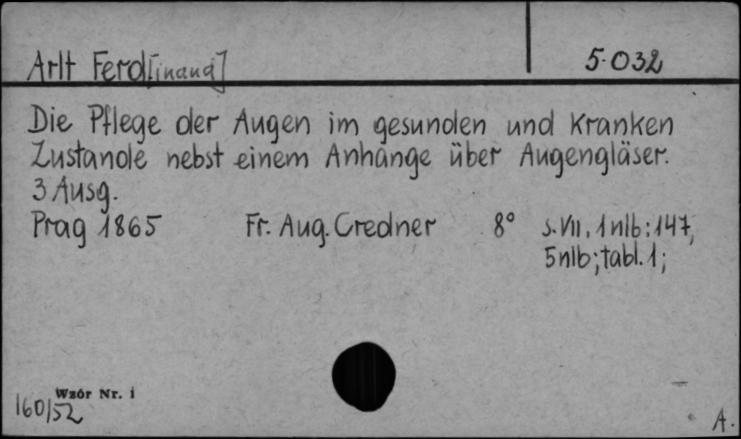 Arlt Ferd[inand]
5.032
Die Pflege der Augen im gesunden und kranken
Zustande nebst einem Anhange über Augengläser.
3 Ausg.
Prag 1865 Fr. Aug. Credner 8° s. VII, 1 nlb: 147,
5 nlb; tabl. 1;
Wzór Nr. 1
160/52
A.